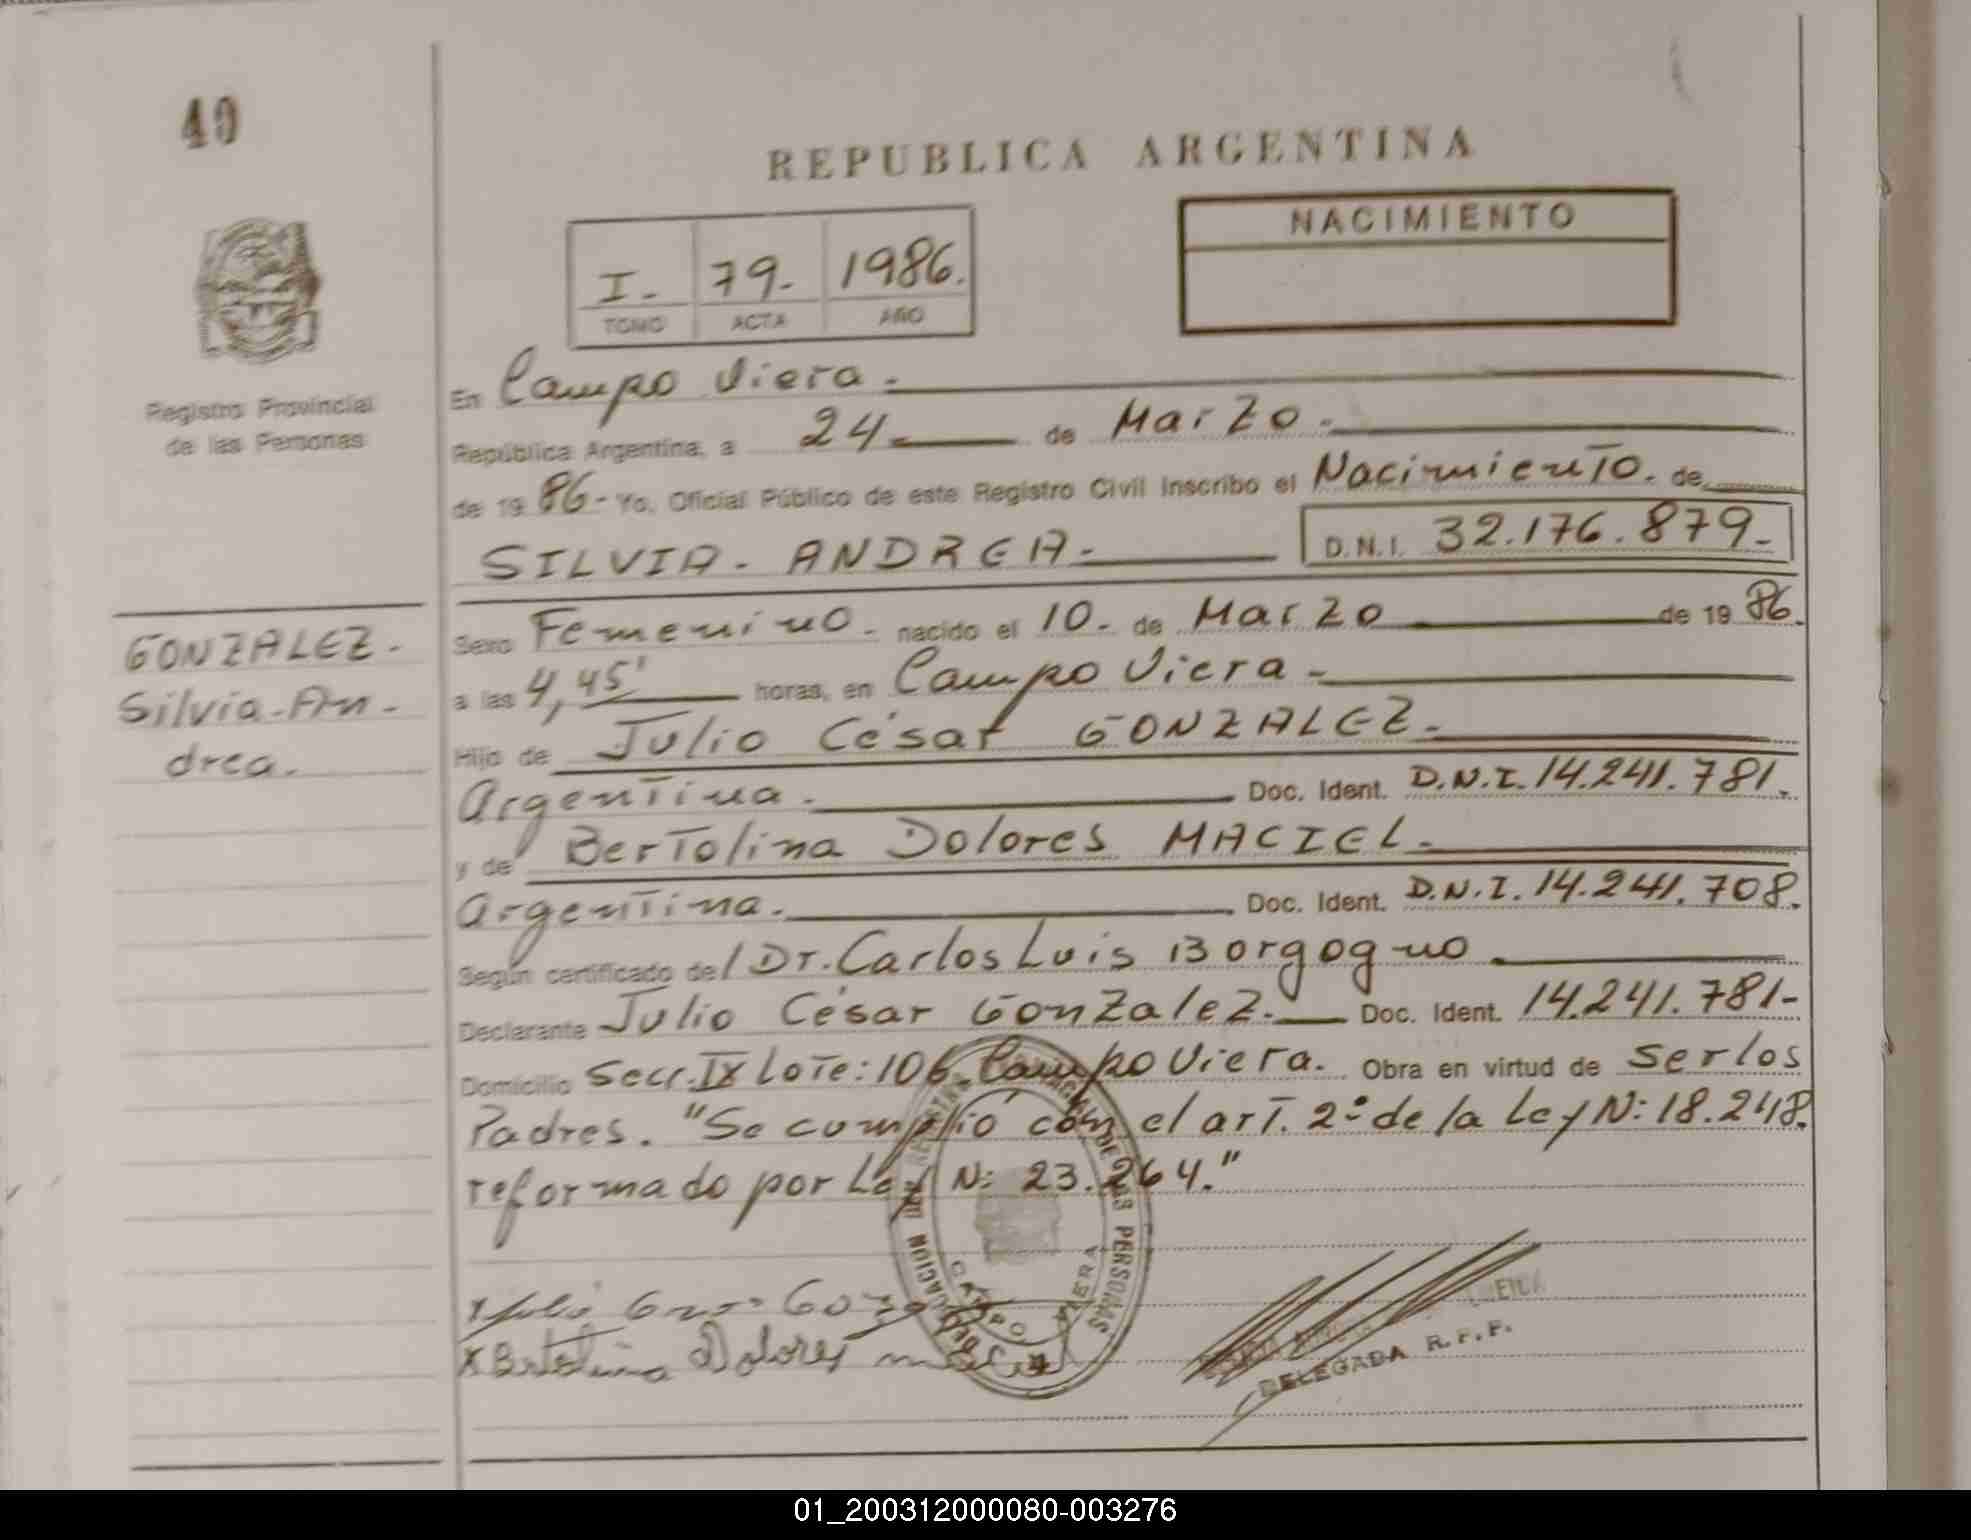 40
REPUBLICA ARGENTINA
NACIMIENTO
I- 79- 1986.
TOMO ACTA AÑO
Registro Provincial
de las Personas
En Campo Viera.
República Argentina, a 24 de Marzo.
de 1986- Yo, Oficial Público de este Registro Civil Inscribo el Nacimiento. de
SILVIA. ANDREA- D.N.I. 32.176.879-
GONZALEZ-
Silvia-An-
drea.
Sexo Femenino- nacido el 10- de Marzo de 1986.
a las 4,45' horas, en Campo Viera-
Hijo de Julio César GONZALEZ-
Argentina. Doc. Ident. D.N.I. 14.241.781.
y de Bertolina Dolores MACIEL-
Argentina. Doc. Ident. D.N.I. 14.241.708.
Según certificado del Dr. Carlos Luis Borgogno
Declarante Julio César Gonzalez. Doc. Ident. 14.241.781-
Domicilio Secc. IX Lote: 106 Campo Viera. Obra en virtud de ser los
Padres. "Se cumplió con el art. 2º de la Ley N: 18.248.
reformado por Ley N: 23.264."
DE LAS PERSONAS
CAMPO VIERA
x Bertolina Dolores Maciel
DELEGADA R.P.P.
01_200312000080-003276